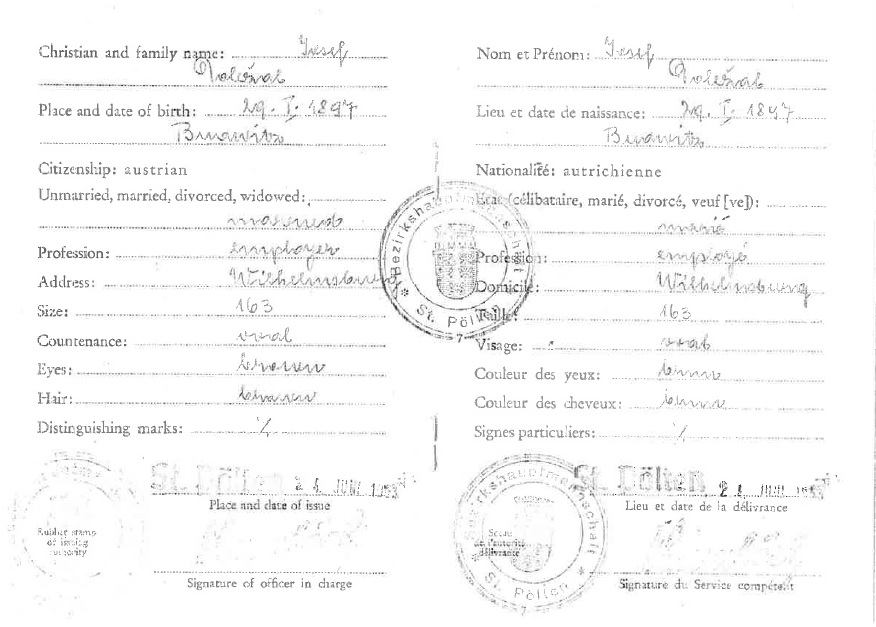 Christian and family name: Josef
Doležal
Place and date of birth: 29. I. 1897
Citizenship: austrian
Unmarried, married, divorced, widowed:
married
Profession: employee
Address: Wilhelmsburg
Size: 163
Countenance: oval
Eyes: brown
Hair: brown
Distinguishing marks: /.
St. Pölten 24. JUNI
Place and date of issue
Rubber stamp
of issuing
authority
Signature of officer in charge
Nom et Prénom: Josef
Doležal
Lieu et date de naissance: 29. I. 1897
Nationalité: autrichienne
Etat (célibataire, marié, divorcé, veuf [ve]):
marié
Profession: employé
Domicile: Wilhelmsburg
Taille: 163
Visage: oval
Couleur des yeux:
Couleur des cheveux:
Signes particuliers: /.
St. Pölten 24. JUNI
Lieu et date de la délivrance
Sceau
de l'autorité
délivrante
Signature du Service compétent
Bezirkshauptmannschaft
* St. Pölten *
7
Bezirkshauptmannschaft
* St. Pölten *
7